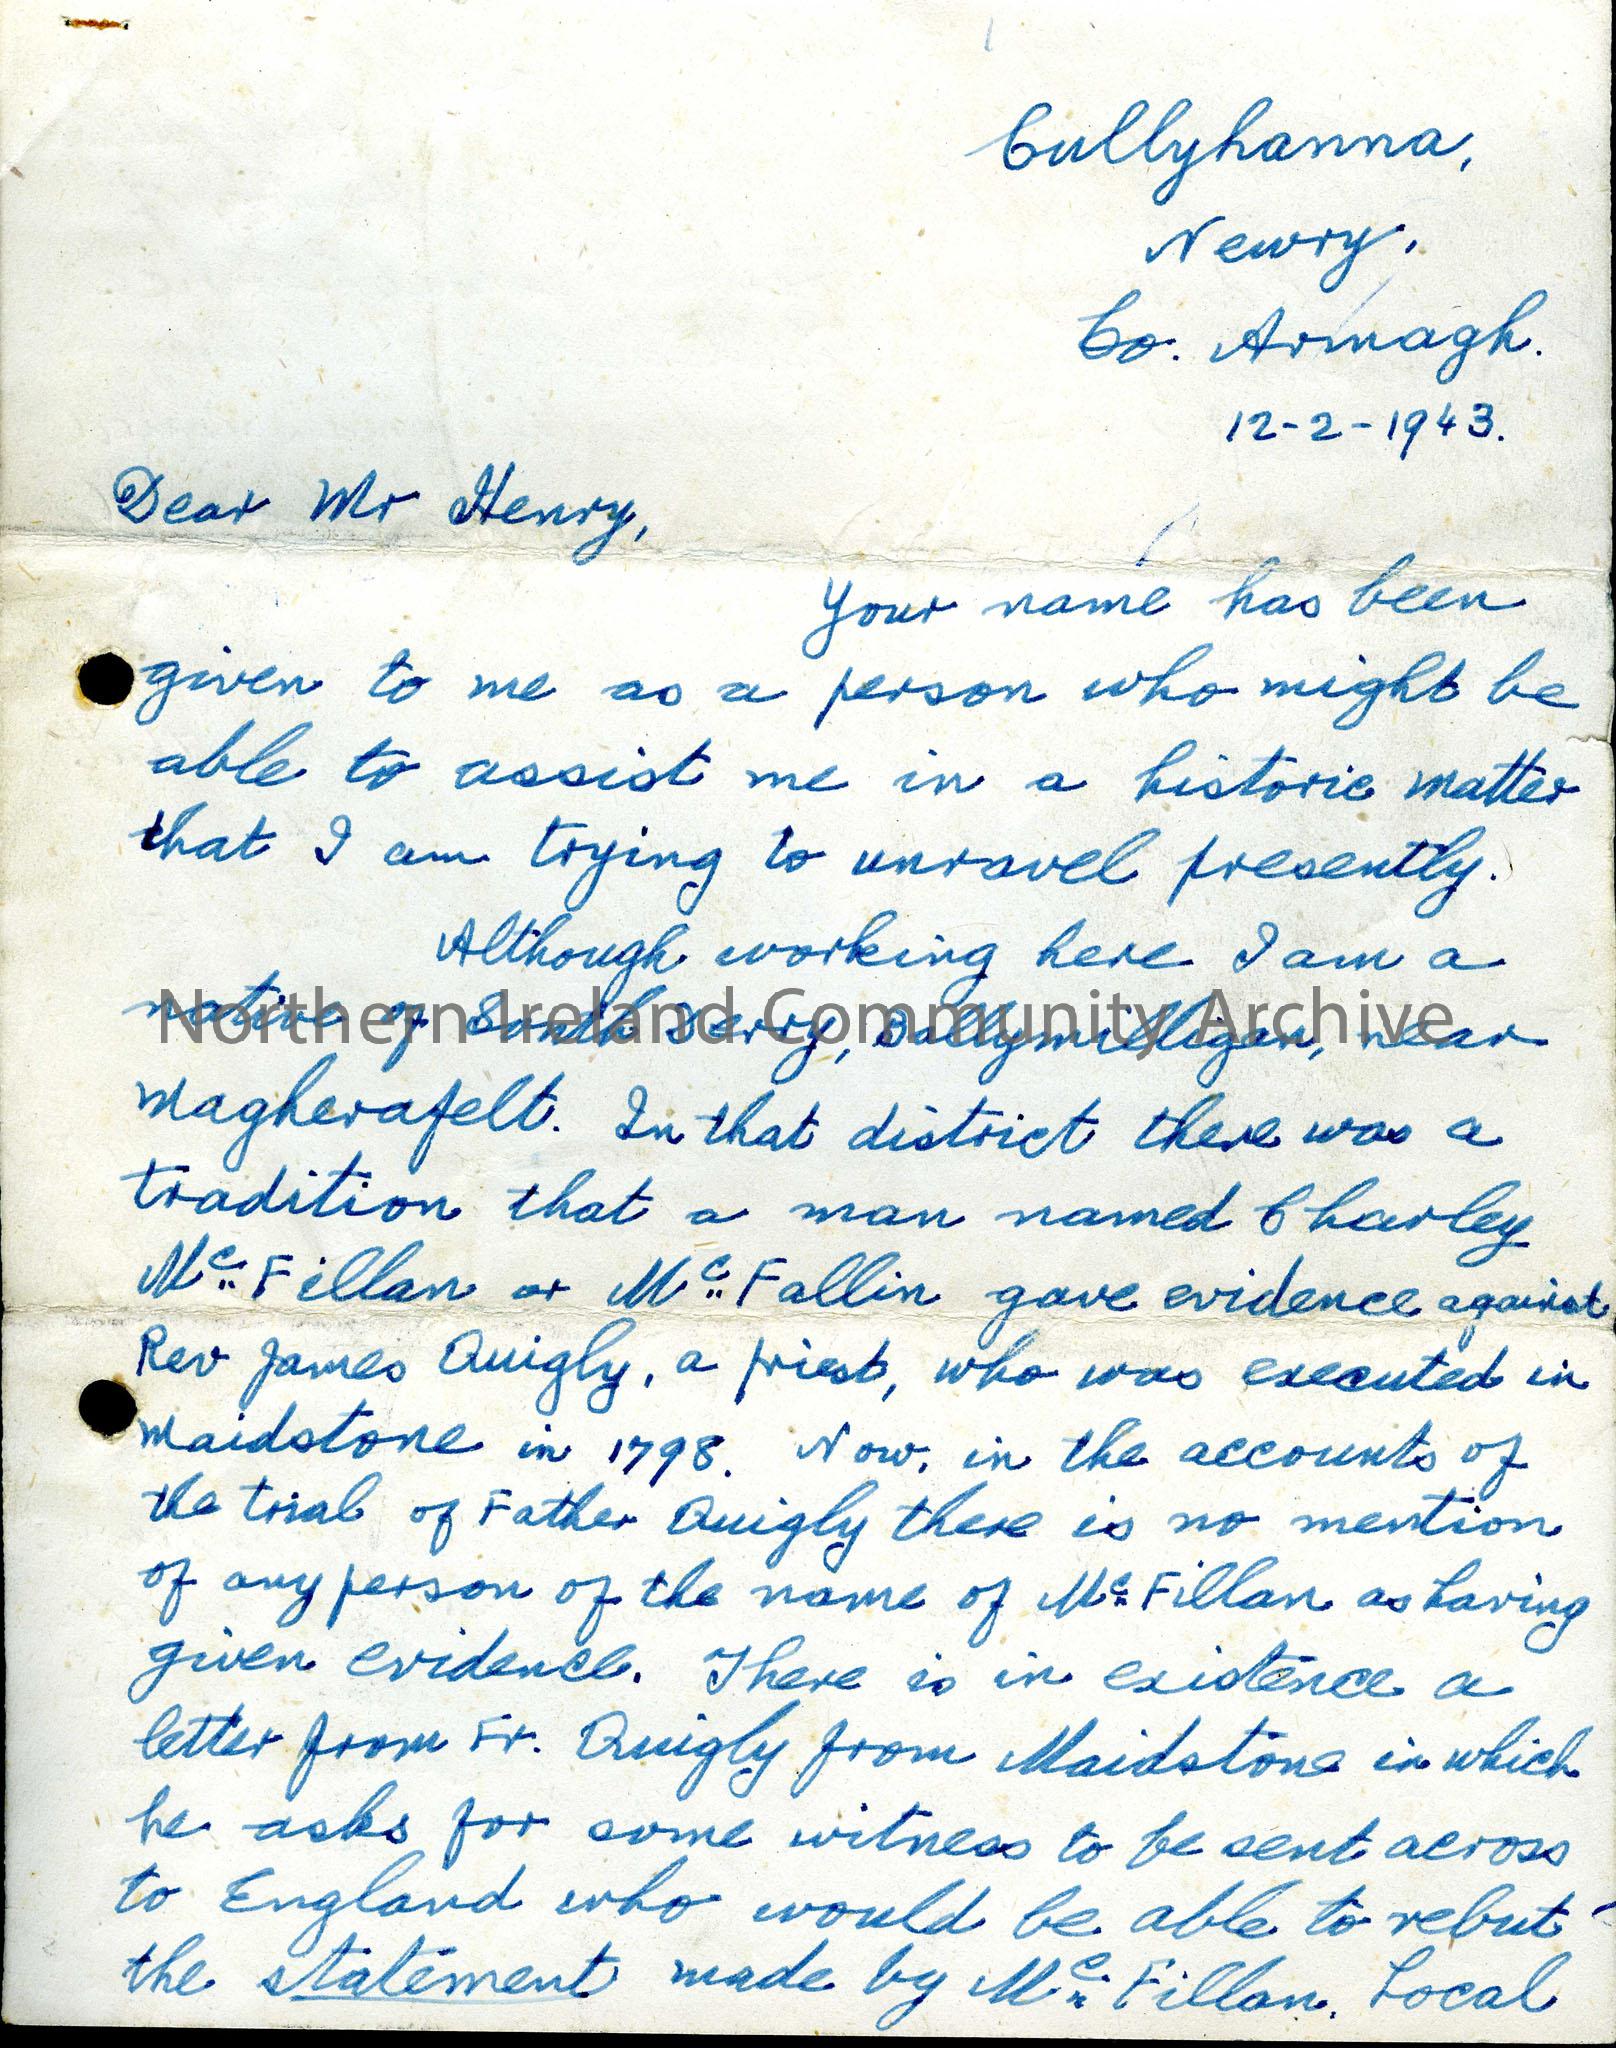 Cullyhanna,
Newry.
Co. Armagh.
12-2-1943.
Dear Mr Henry,
Your name has been
given to me as a person who might be
able to assist me in a historic matter
that I am trying to unravel presently.
Although working here I am a
native of South Derry, Ballymilligan, near
Northern Ireland Community Archive
Magherafelt. In that district there was a
tradition that a man named Charley
McFillan or McFallin gave evidence against
Rev James Quigly, a priest, who was executed in
Maidstone in 1798. Now, in the accounts of
the trial of Father Quigly there is no mention
of any person of the name of McFillan as having
given evidence. There is in existence a
letter from Fr. Quigly from Maidstone in which
he asks for some witness to be sent across
to England who would be able to rebut
the statement made by McFillan. Local